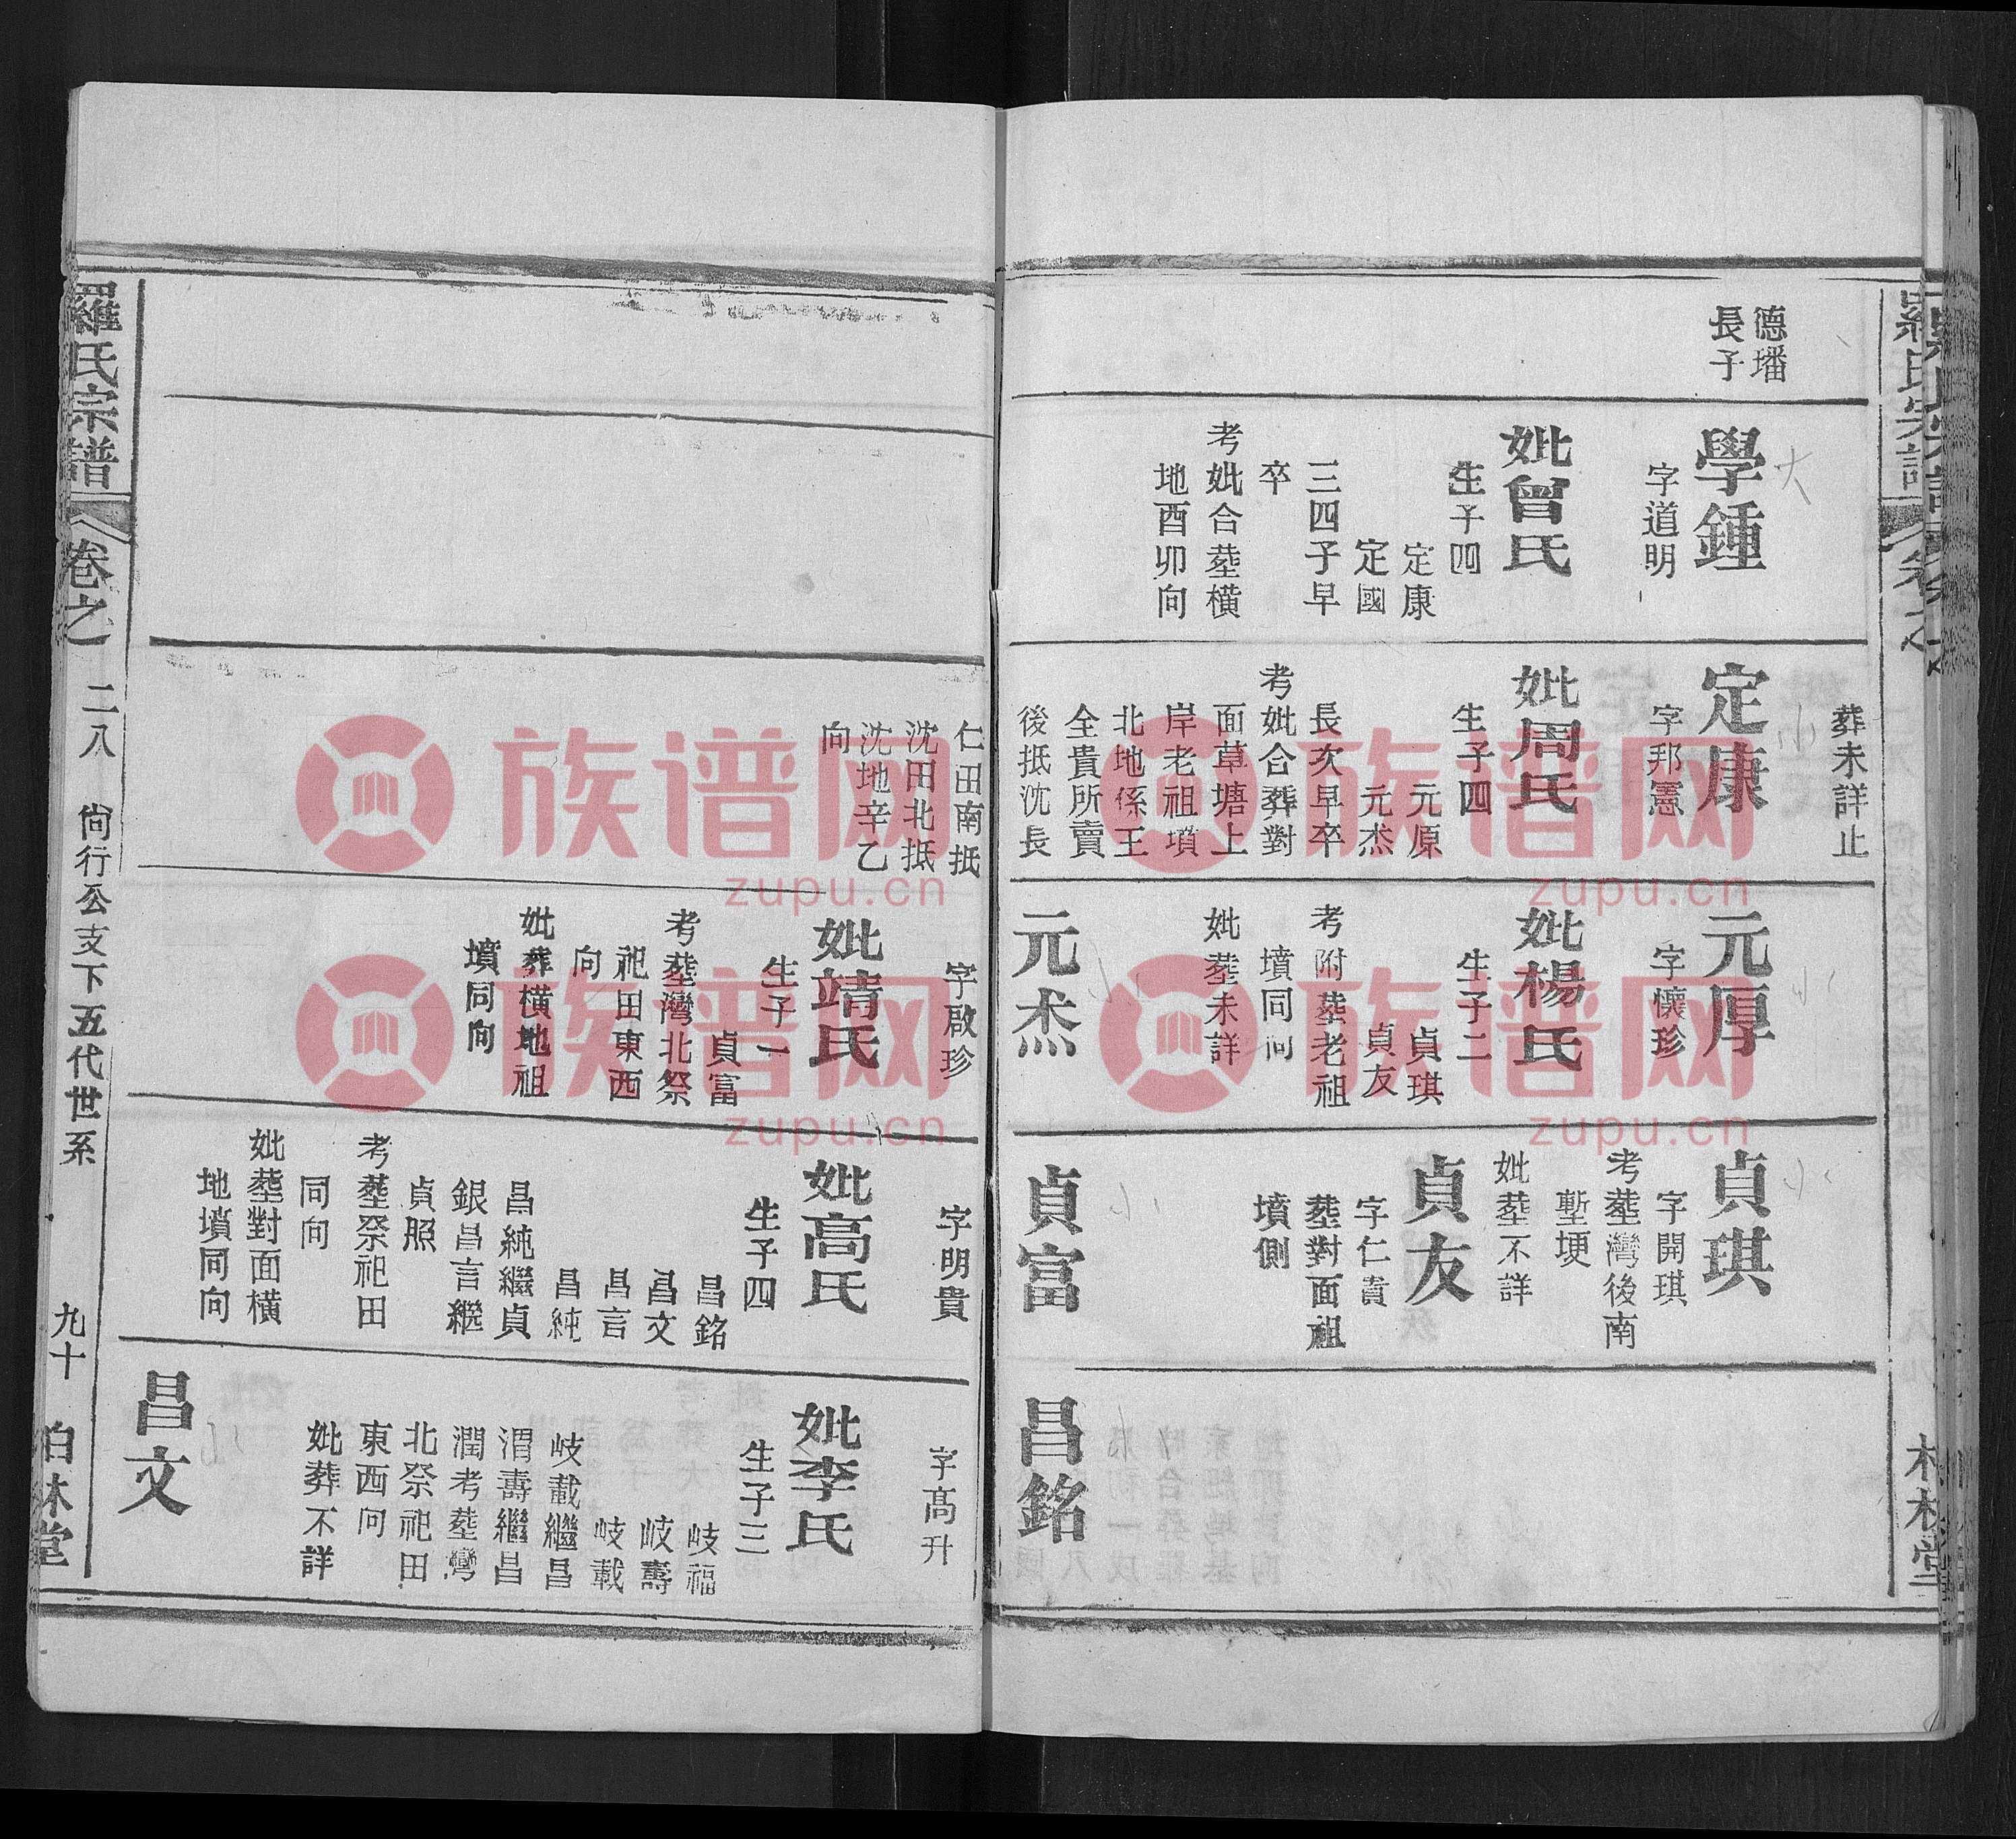 德璠
長子
學鍾
字道明
妣曾氏
生子四
定康
定國
三四子早
卒
考妣合塟横
地酉卯向
葬未詳止
定康
字邦憲
妣周氏
生子四
元原
元杰
長次早卒
考妣合葬對
面草塘上
岸老祖墳
北地係王
全貴所賣
後抵沈長
元厚
字懷珍
妣楊氏
生子二
貞琪
貞友
考附塟老祖
墳同向
妣塟未詳
元杰
貞琪
字開琪
考塟灣後南
塹埂
妣塟不詳
貞友
字仁貴
塟對面祖
墳側
貞富
昌銘
仁田南抵
沈田北抵
沈地辛乙
向
字啟珍
妣靖氏
生子一
貞富
考塟灣北祭
祀田東西
向
妣葬横地祖
墳同向
字明貴
妣高氏
生子四
昌銘
昌文
昌言
昌純
昌純繼貞
銀昌言繼
貞照
考塟祭祀田
同向
妣塟對面横
地墳同向
字高升
妣李氏
生子三
岐福
岐壽
岐載
岐載繼昌
渭壽繼昌
潤考塟灣
北祭祀田
東西向
妣葬不詳
昌文
羅氏宗譜
卷之
二八
尚行公支下五代世系
九十
柏林堂
族谱网
zupu.cn
族谱网
zupu.cn
族谱网
zupu.cn
族谱网
zupu.cn